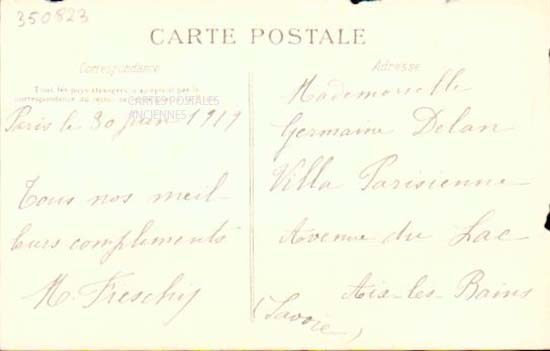 350823
CARTE POSTALE
Correspondance
Adresse
Tous les pays étrangers n'acceptent pas la
correspondance au recto
CARTES POSTALES
ANCIENNES
Paris le 30 Juin 1919
Tous nos meil
leurs compliments
M. Freschy
Mademoiselle
Germaine Delan
Villa Parisienne
Avenue du Lac
Aix-les-Bains
(Savoie)